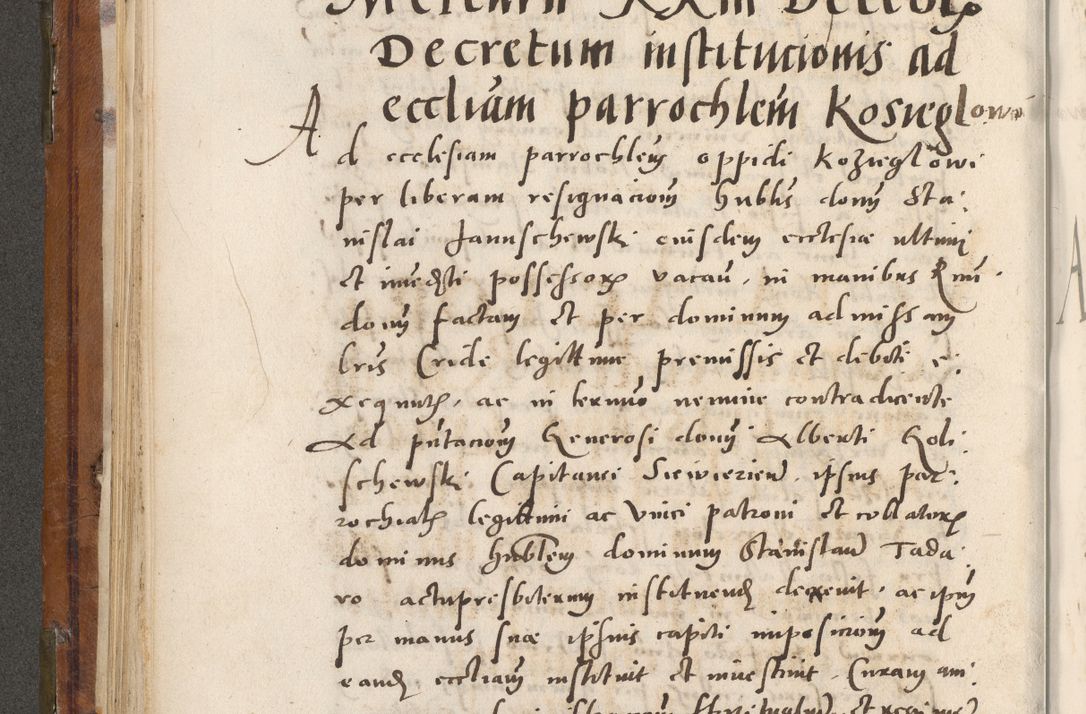 Decretum institucionis ad
eccliam parrochlem Kosieglowi
Ad ecclesiam parrochlem oppidi Kozieglowi
per liberam resignaciom hublis domi Sta:
nislai Januschewski eiusdem ecclesiae ultimi
et possessor vacan. in manibus Rmi
domi factam et per dominum admissam
lris Cride legittime premissis et debiti e:
xequut, ac in termino nemine contradicente
Ad pntaciom Generosi domi Alberti Goli
schewski Capitanei Siewierien. ipsius par:
rochialis legittimi ac unici patroni et collator
dominus hublem dominum Stanislaum Tada:
ro actupresbiterum instituend decrevit. ac ipm
per manus suae ipsius capiti imposiciom ad
eand eccliam instituit et investiuit. Curam ani: